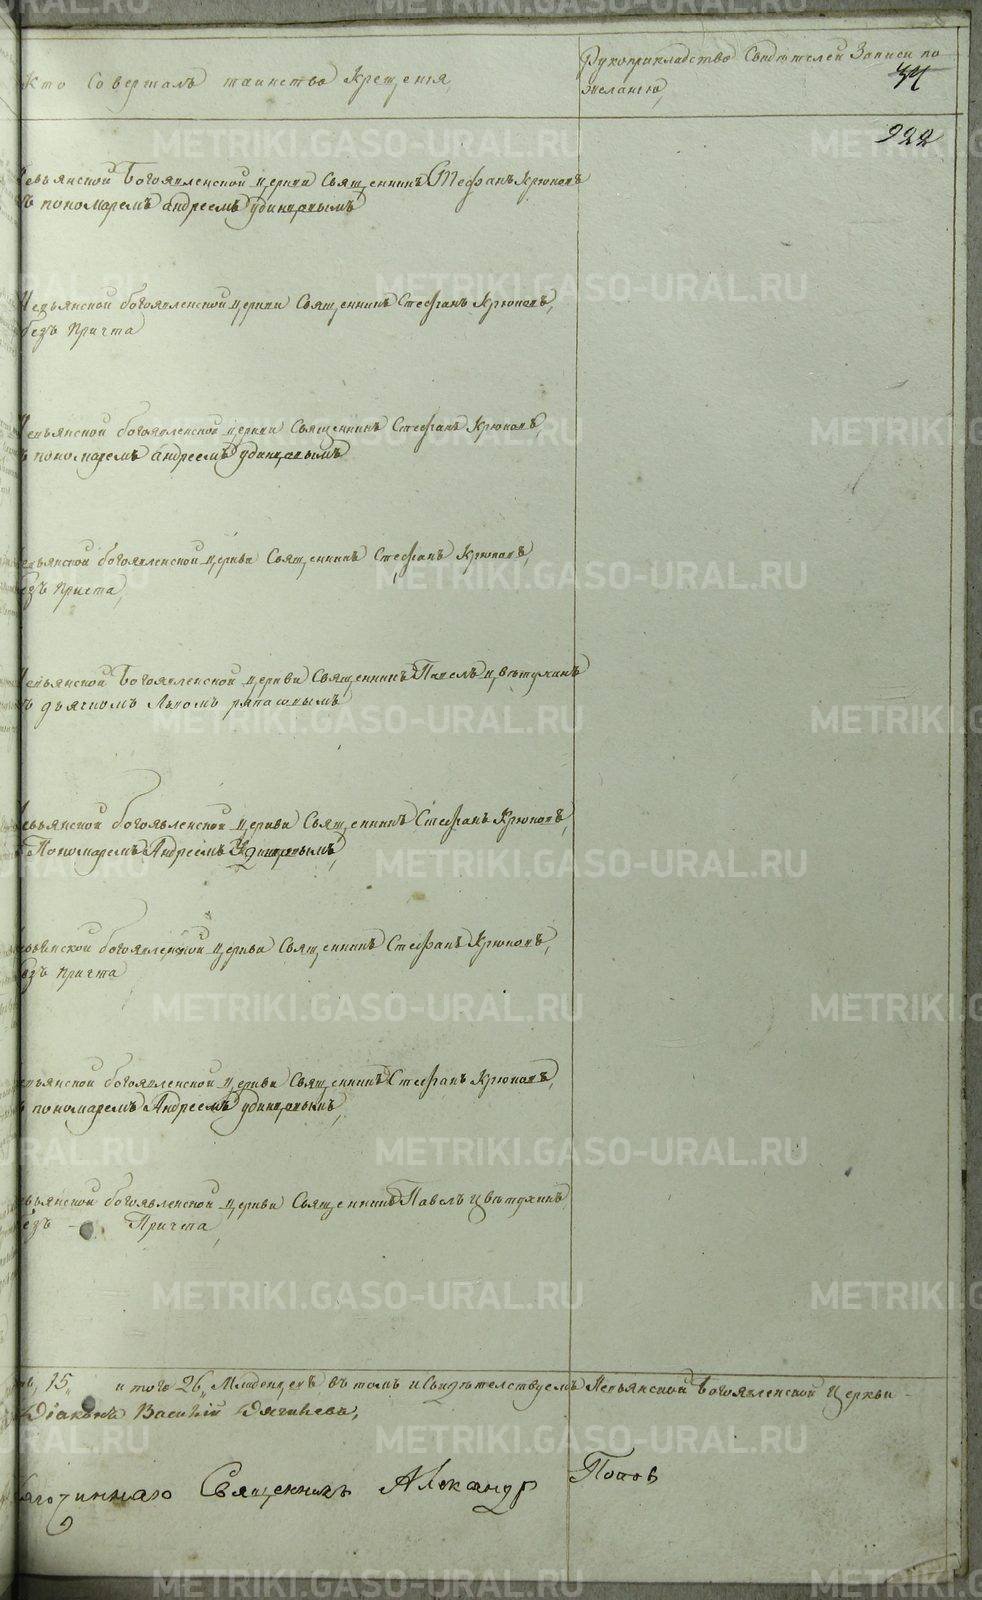 Кто Совершалъ таинство Крещенія,
Рукоприкладство Свидѣтелей Записи по
желанію,
922
Невьянской Богоявленской церкви Священникъ Стефанъ Крюковъ
съ пономаремъ андреемъ удинцовымъ
Невьянской богоявленской церкви Священникъ Стефанъ Крюковъ,
безъ причта
Невьянской богоявленской церкви Священникъ Стефанъ Крюковъ,
съ пономаремъ андреемъ удинцовымъ
Невьянской богоявленской церкви Священникъ Стефанъ Крюковъ,
безъ причта,
Невьянской Богоявленской церкви Священникъ Павелъ цвѣтухинъ
съ дьячкомъ Львомъ
Невьянской богоявленской церкви Священникъ Стефанъ Крюковъ,
Пономаремъ Андреемъ Удинцовымъ,
Невьянской богоявленской церкви Священникъ Стефанъ Крюковъ,
безъ причта
Невьянской богоявленской церкви Священникъ Стефанъ Крюковъ,
съ пономаремъ Андреемъ удинцовымъ,
Невьянской богоявленской церкви Священникъ Павелъ Цвѣтухинъ
безъ - Причта,
15, итого 26, Младенцевъ въ томъ и Свидѣтелствуемъ Невьянской Богоявленской Церкви
Діаконъ Василій
Священникъ Александр Попов
METRIKI.GASO-URAL.RU